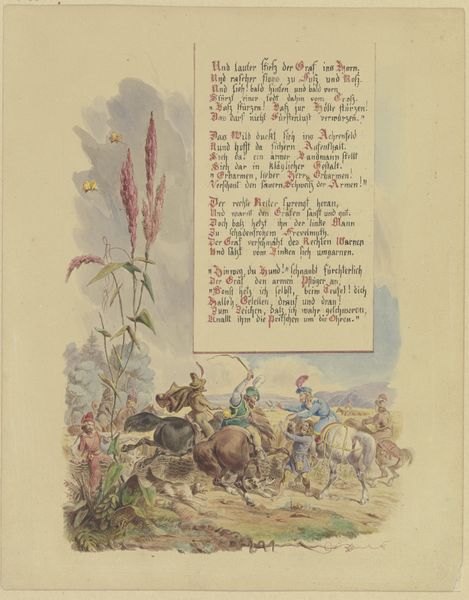 Und lauter stieß der Graf ins Horn,
Und rascher flogs zu Fuß und Roß.
Und sieh! bald hinten und bald vorn
Stürzt einer todt dahin vom Troß.
"Laß stürzen! Laß zur Hölle stürzen!
Das darf nicht Fürstenlust verwürzen."
Das Wild duckt sich ins Aehrenfeld
Und hofft da sichern Aufenthalt.
Sieh da! ein armer Landmann stellt
Sich dar in kläglicher Gestalt.
"Erbarmen, lieber Herr, Erbarmen!
Verschont den sauern Schweiß der Armen!"
Der rechte Reiter sprengt heran,
Und warnt den Grafen sanft und gut.
Doch baß hetzt ihn der linke Mann
Zu schadenfrohem Frevelmuth.
Der Graf verschmäht des Rechten Warnen
Und läßt vom Linken sich umgarnen.
"Hinweg, du Hund!" schnaubt fürchterlich
Der Graf den armen Pflüger an,
"Sonst hetz ich selbst, beim Teufel! dich
Halloh, Gesellen, drauf und dran!
Zum Zeichen, daß ich wahr geschworen,
Knallt ihm die Peitschen um die Ohren."